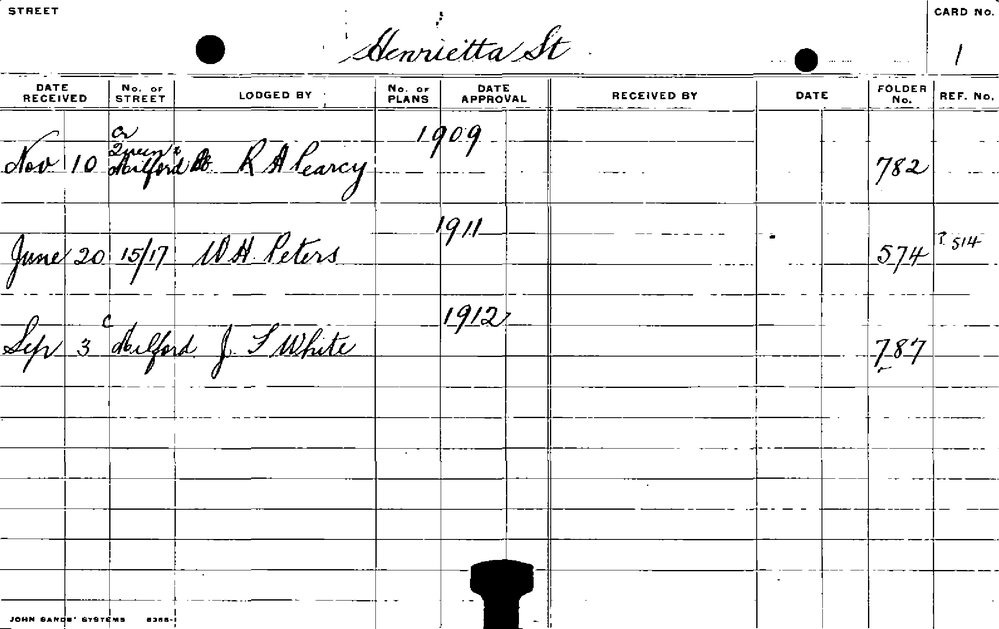 STREET
CARD No.
Henrietta St
1
DATE RECEIVED No. OF STREET LODGED BY No. OF PLANS DATE APPROVAL RECEIVED BY DATE FOLDER No. REF. No.
1909
Cr
Queen &
Nov 10 Milford St R A Pearcy 782
1911
June 20 15/17 W H. Peters 574 P. 514
1912
Sep 3 C Milford J. F White 787
JOHN SANDS' SYSTEMS